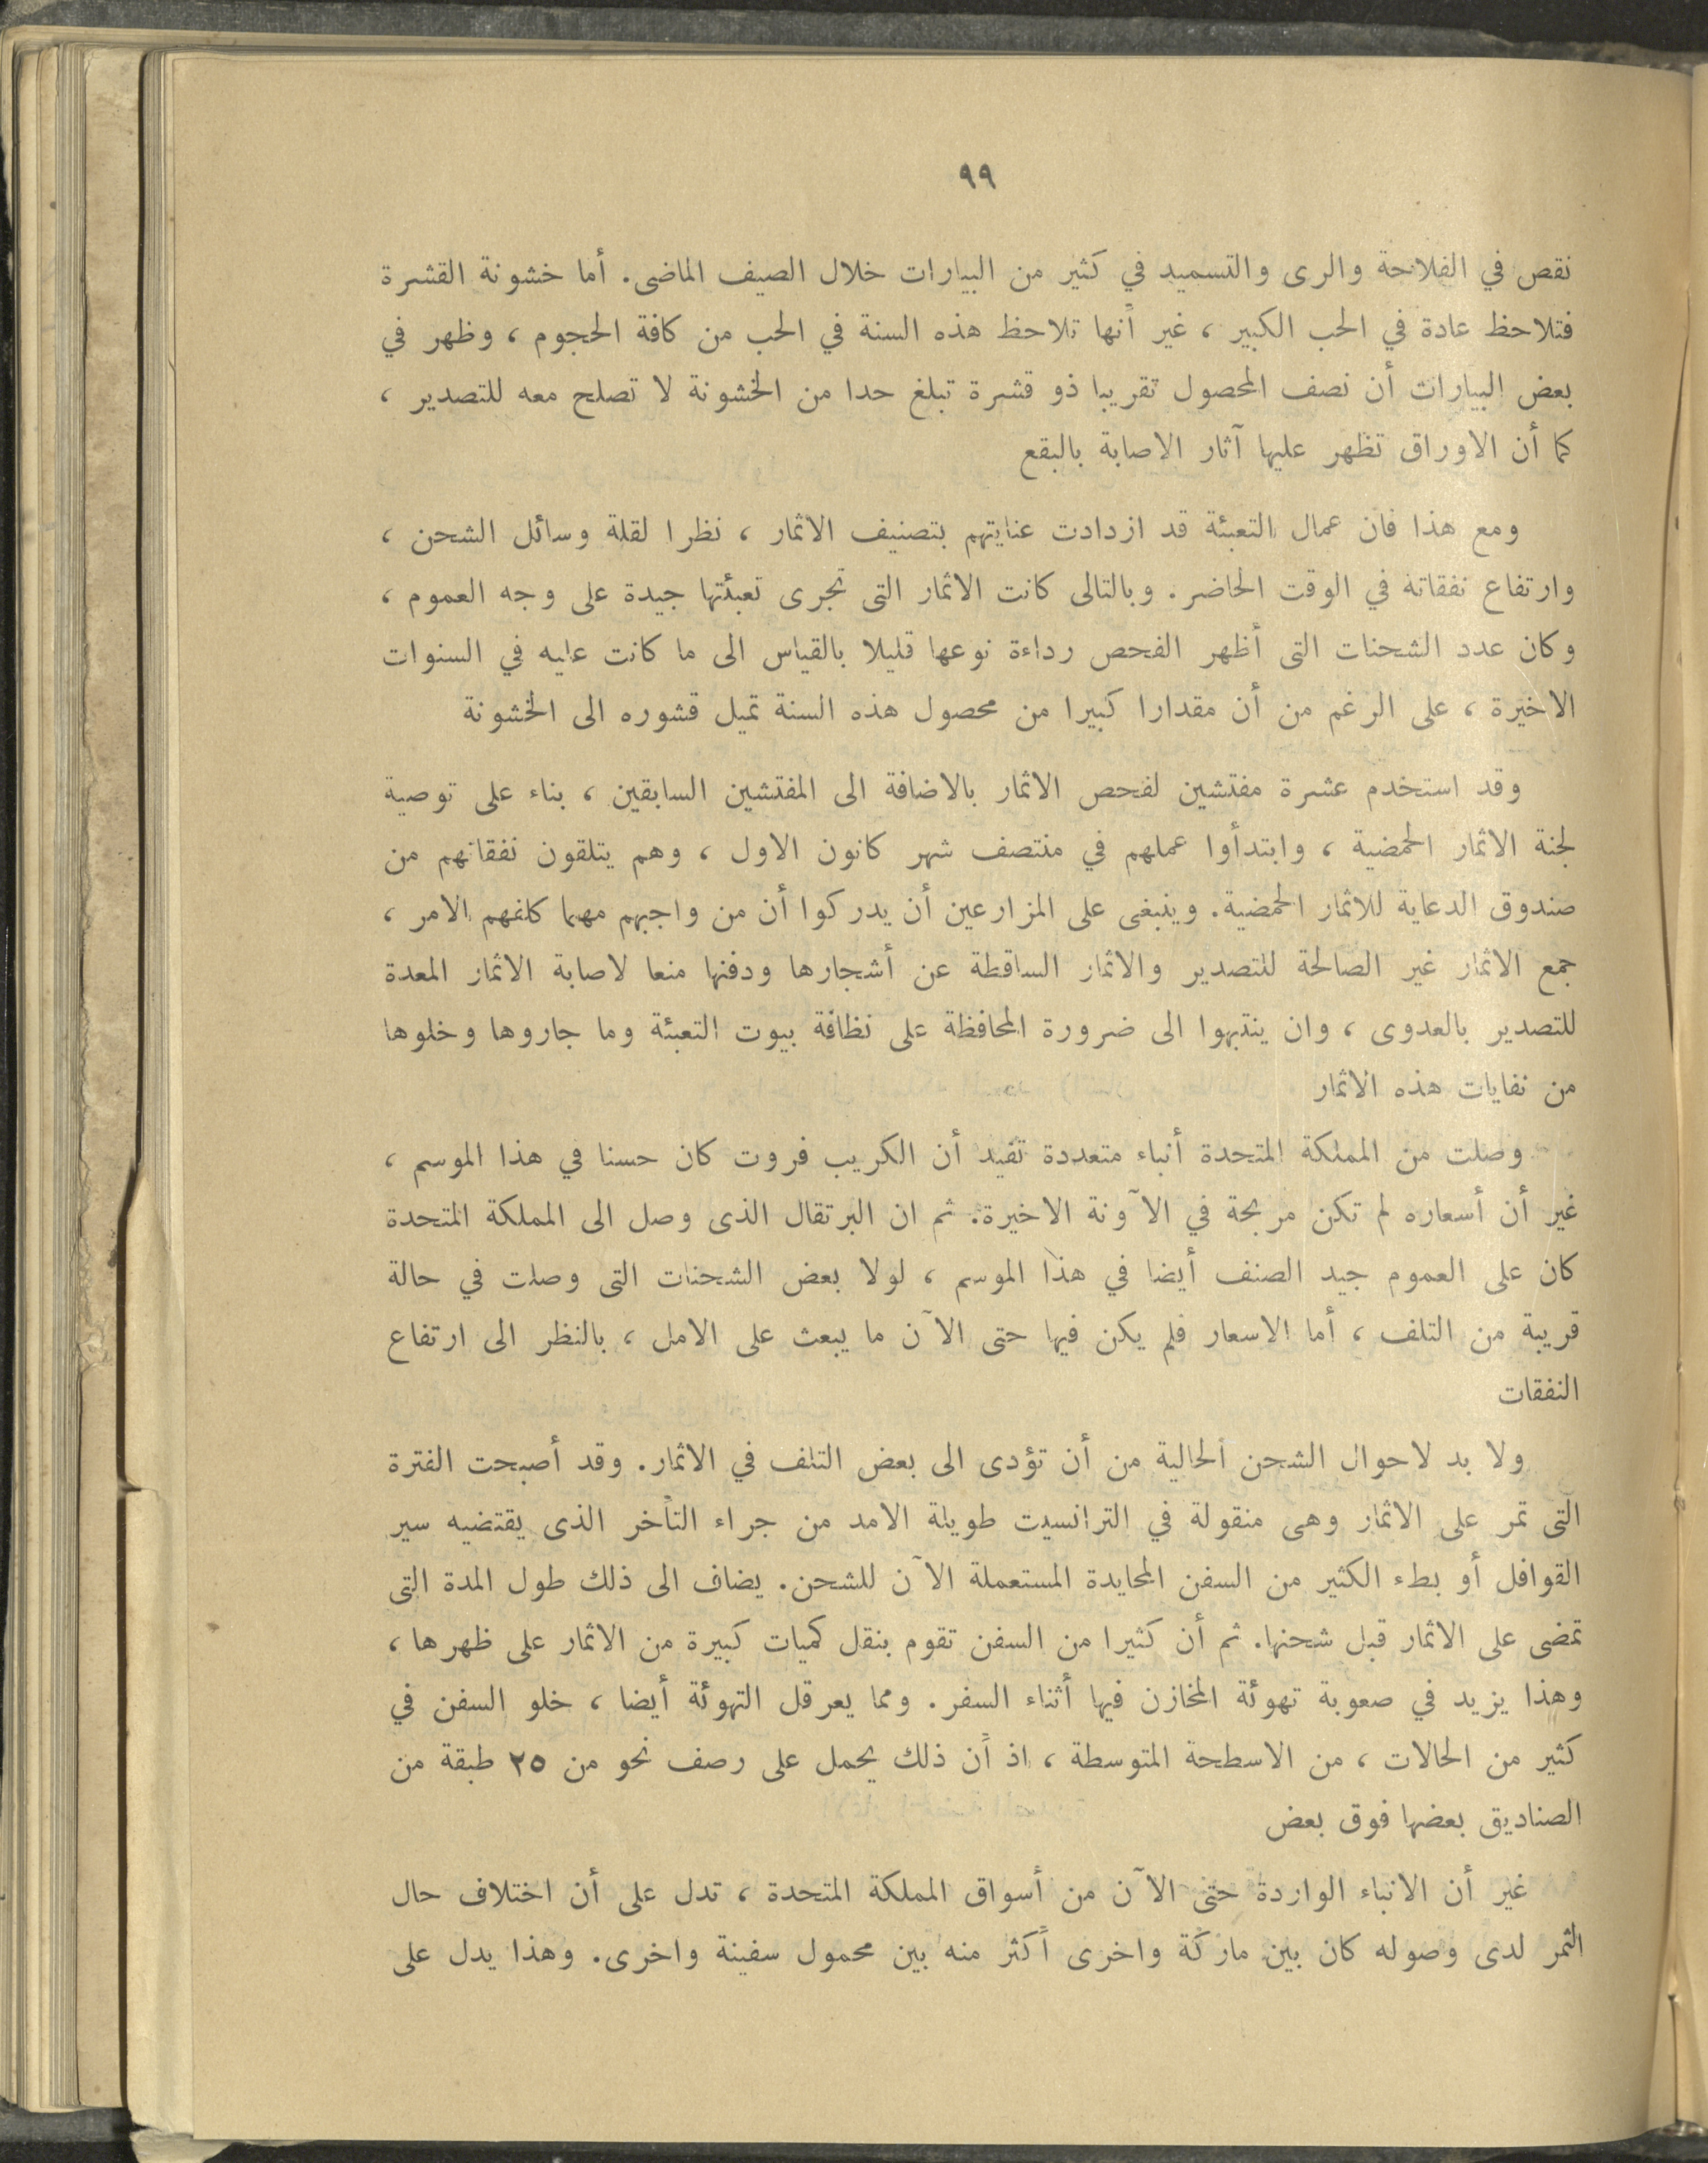 ٩٩
نقص في الفلاحة والرى والتسميد في كثير من البيارات خلال الصيف الماضى. أما خشونة القشرة
فتلاحظ عادة في الحب الكبير ، غير أنها تلاحظ هذه السنة في الحب من كافة الحجوم ، وظهر في
بعض البيارات أن نصف المحصول تقريبا ذو قشرة تبلغ حدا من الخشونة لا تصلح معه للتصدير ،
كما أن الاوراق تظهر عليها آثار الاصابة بالبقع
ومع هذا فان عمال التعبئة قد ازدادت عنايتهم بتصنيف الاثمار ، نظرا لقلة وسائل الشحن ،
وارتفاع نفقاته في الوقت الحاضر. وبالتالى كانت الاثمار التى تجرى تعبئتها جيدة على وجه العموم ،
وكان عدد الشحنات التى أظهر الفحص رداءة نوعها قليلا بالقياس الى ما كانت عليه في السنوات
الاخيرة ، على الرغم من أن مقدارا كبيرا من محصول هذه السنة تميل قشوره الى الخشونة
وقد استخدم عشرة مفتشين لفحص الاثمار بالاضافة الى المفتشين السابقين ، بناء على توصية
لجنة الاثمار الحمضية ، وابتدأوا عملهم في منتصف شهر كانون الاول ، وهم يتلقون نفقاتهم من
صندوق الدعاية للاثمار الحمضية. وينبغى على المزارعين أن يدركوا أن من واجبهم مهما كلفهم الامر ،
جمع الاثمار غير الصالحة للتصدير والاثمار الساقطة عن أشجارها ودفنها منعا لاصابة الاثمار المعدة
للتصدير بالعدوى ، وان ينتبهوا الى ضرورة المحافظة على نظافة بيوت التعبئة وما جاروها وخلوها
من نفايات هذه الاثمار
وصلت من المملكة المتحدة أنباء متعددة تفيد أن الكريب فروت كان حسنا في هذا الموسم ،
غير أن أسعاره لم تكن مربحة في الآونة الاخيرة. ثم ان البرتقال الذى وصل الى المملكة المتحدة
كان على العموم جيد الصنف أيضا في هذا الموسم ، لولا بعض الشحنات التى وصلت في حالة
قريبة من التلف ، أما الاسعار فلم يكن فيها حتى الآن ما يبعث على الامل ، بالنظر الى ارتفاع
النفقات
ولا بد لاحوال الشحن الحالية من أن تؤدى الى بعض التلف في الاثمار. وقد أصبحت الفترة
التى تمر على الاثمار وهى منقولة في الترانسيت طويلة الامد من جراء التأخر الذى يقتضيه سير
القوافل أو بطء الكثير من السفن المحايدة المستعملة الآن للشحن. يضاف الى ذلك طول المدة التى
تمضى على الاثمار قبل شحنها. ثم أن كثيرا من السفن تقوم بنقل كميات كبيرة من الاثمار على ظهرها ،
وهذا يزيد في صعوبة تهوئة المخازن فيها أثناء السفر. ومما يعرقل التهوئة أيضا ، خلو السفن في
كثير من الحالات ، من الاسطحة المتوسطة ، اذ أن ذلك يحمل على رصف نحو من ٢٥ طبقة من
الصناديق بعضها فوق بعض
غير أن الانباء الواردة حتى الآن من أسواق المملكة المتحدة ، تدل على أن اختلاف حال
الثمر لدى وصوله كان بين ماركة واخرى أكثر منه بين محمول سفينة واخرى. وهذا يدل على